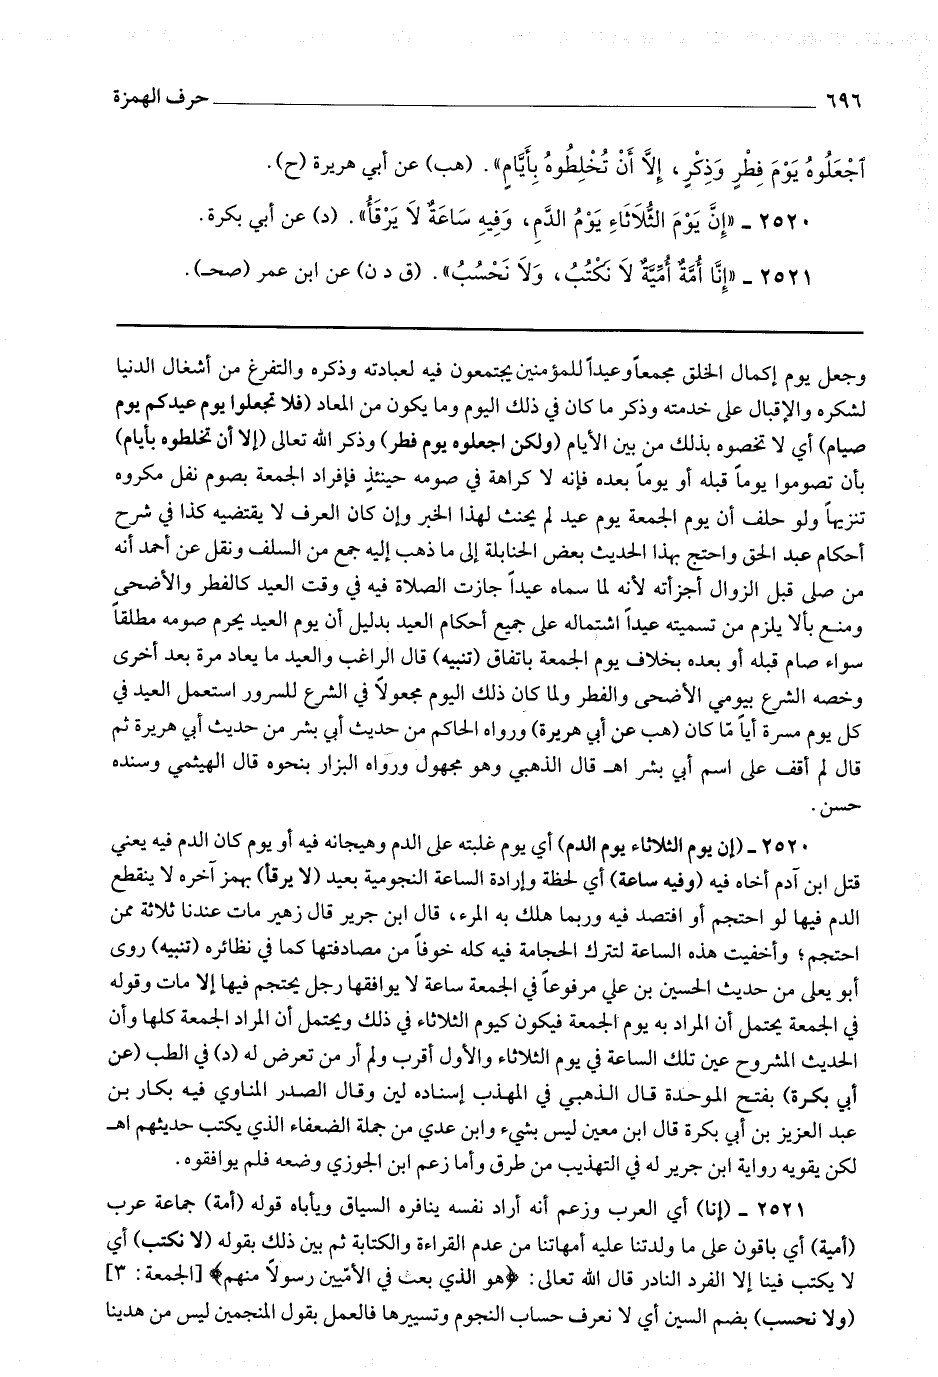 ٦٩٦ حرف الهمزة
ٱجْعَلُوهُ يَوْمَ فِطْرٍ وَذِكْرٍ، إِلَّا أَنْ تُخْلِطُوهُ بِأَيَّامٍ». (هب) عن أبي هريرة (ح).
٢٥٢٠ ـ «إِنَّ يَوْمَ الثُّلَاثَاءِ يَوْمُ الدَّمِ، وَفِيهِ سَاعَةٌ لَا يَرْقَأُ». (د) عن أبي بكرة.
٢٥٢١ ـ «إِنَّا أُمَّةٌ أُمِّيَّةٌ لَا نَكْتُبُ، وَلَا نَحْسُبُ». (ق د ن) عن ابن عمر (صحـ).
وجعل يوم إكمال الخلق مجمعاً وعيداً للمؤمنين يجتمعون فيه لعبادته وذكره والتفرغ من أشغال الدنيا
لشكره والإقبال على خدمته وذكر ما كان في ذلك اليوم وما يكون من المعاد (فلا تجعلوا يوم عيدكم يوم
صيام) أي لا تخصوه بذلك من بين الأيام (ولكن اجعلوه يوم فطر) وذكر الله تعالى (إلا أن تخلطوه بأيام)
بأن تصوموا يوماً قبله أو يوماً بعده فإنه لا كراهة في صومه حينئذٍ فإفراد الجمعة بصوم نفل مكروه
تنزيهاً ولو حلف أن يوم الجمعة يوم عيد لم يحنث لهذا الخبر وإن كان العرف لا يقتضيه كذا في شرح
أحكام عبد الحق واحتج بهذا الحديث بعض الحنابلة إلى ما ذهب إليه جمع من السلف ونقل عن أحمد أنه
من صلى قبل الزوال أجزأته لأنه لما سماه عيداً جازت الصلاة فيه في وقت العيد كالفطر والأضحى
ومنع بألا يلزم من تسميته عيداً اشتماله على جميع أحكام العيد بدليل أن يوم العيد يحرم صومه مطلقاً
سواء صام قبله أو بعده بخلاف يوم الجمعة باتفاق (تنبيه) قال الراغب والعيد ما يعاد مرة بعد أخرى
وخصه الشرع بيومي الأضحى والفطر ولما كان ذلك اليوم مجعولاً في الشرع للسرور استعمل العيد في
كل يوم مسرة أياً مّا كان (هب عن أبي هريرة) ورواه الحاكم من حديث أبي بشر من حديث أبي هريرة ثم
قال لم أقف على اسم أبي بشر اهـ قال الذهبي وهو مجهول ورواه البزار بنحوه قال الهيثمي وسنده
حسن.
٢٥٢٠ ـ (إن يوم الثلاثاء يوم الدم) أي يوم غلبته على الدم وهيجانه فيه أو يوم كان الدم فيه يعني
قتل ابن آدم أخاه فيه (وفيه ساعة) أي لحظة وإرادة الساعة النجومية بعيد (لا يرقأ) بهمز آخره لا ينقطع
الدم فيها لو احتجم أو افتصد فيه وربما هلك به المرء، قال ابن جرير قال زهير مات عندنا ثلاثة ممن
احتجم؛ وأخفيت هذه الساعة لتترك الحجامة فيه كله خوفاً من مصادفتها كما في نظائره (تنبيه) روى
أبو يعلى من حديث الحسين بن علي مرفوعاً في الجمعة ساعة لا يوافقها رجل يحتجم فيها إلا مات وقوله
في الجمعة يحتمل أن المراد به يوم الجمعة فيكون كيوم الثلاثاء في ذلك ويحتمل أن المراد الجمعة كلها وأن
الحديث المشروح عين تلك الساعة في يوم الثلاثاء والأول أقرب ولم أر من تعرض له (د) في الطب (عن
أبي بكرة) بفتح الموحدة قال الذهبي في المهذب إسناده لين وقال الصدر المناوي فيه بكار بن
عبد العزيز بن أبي بكرة قال ابن معين ليس بشيء وابن عدي من جملة الضعفاء الذي يكتب حديثهم اهـ
لكن يقويه رواية ابن جرير له في التهذيب من طرق وأما زعم ابن الجوزي وضعه فلم يوافقوه.
٢٥٢١ ـ (إنا) أي العرب وزعم أنه أراد نفسه ينافره السياق ويأباه قوله (أمة) جماعة عرب
(أمية) أي باقون على ما ولدتنا عليه أمهاتنا من عدم القراءة والكتابة ثم بين ذلك بقوله (لا نكتب) أي
لا يكتب فينا إلا الفرد النادر قال الله تعالى: ﴿هو الذي بعث في الأمّيين رسولاً منهم﴾ [الجمعة: ٣]
(ولا نحسب) بضم السين أي لا نعرف حساب النجوم وتسييرها فالعمل بقول المنجمين ليس من هدينا